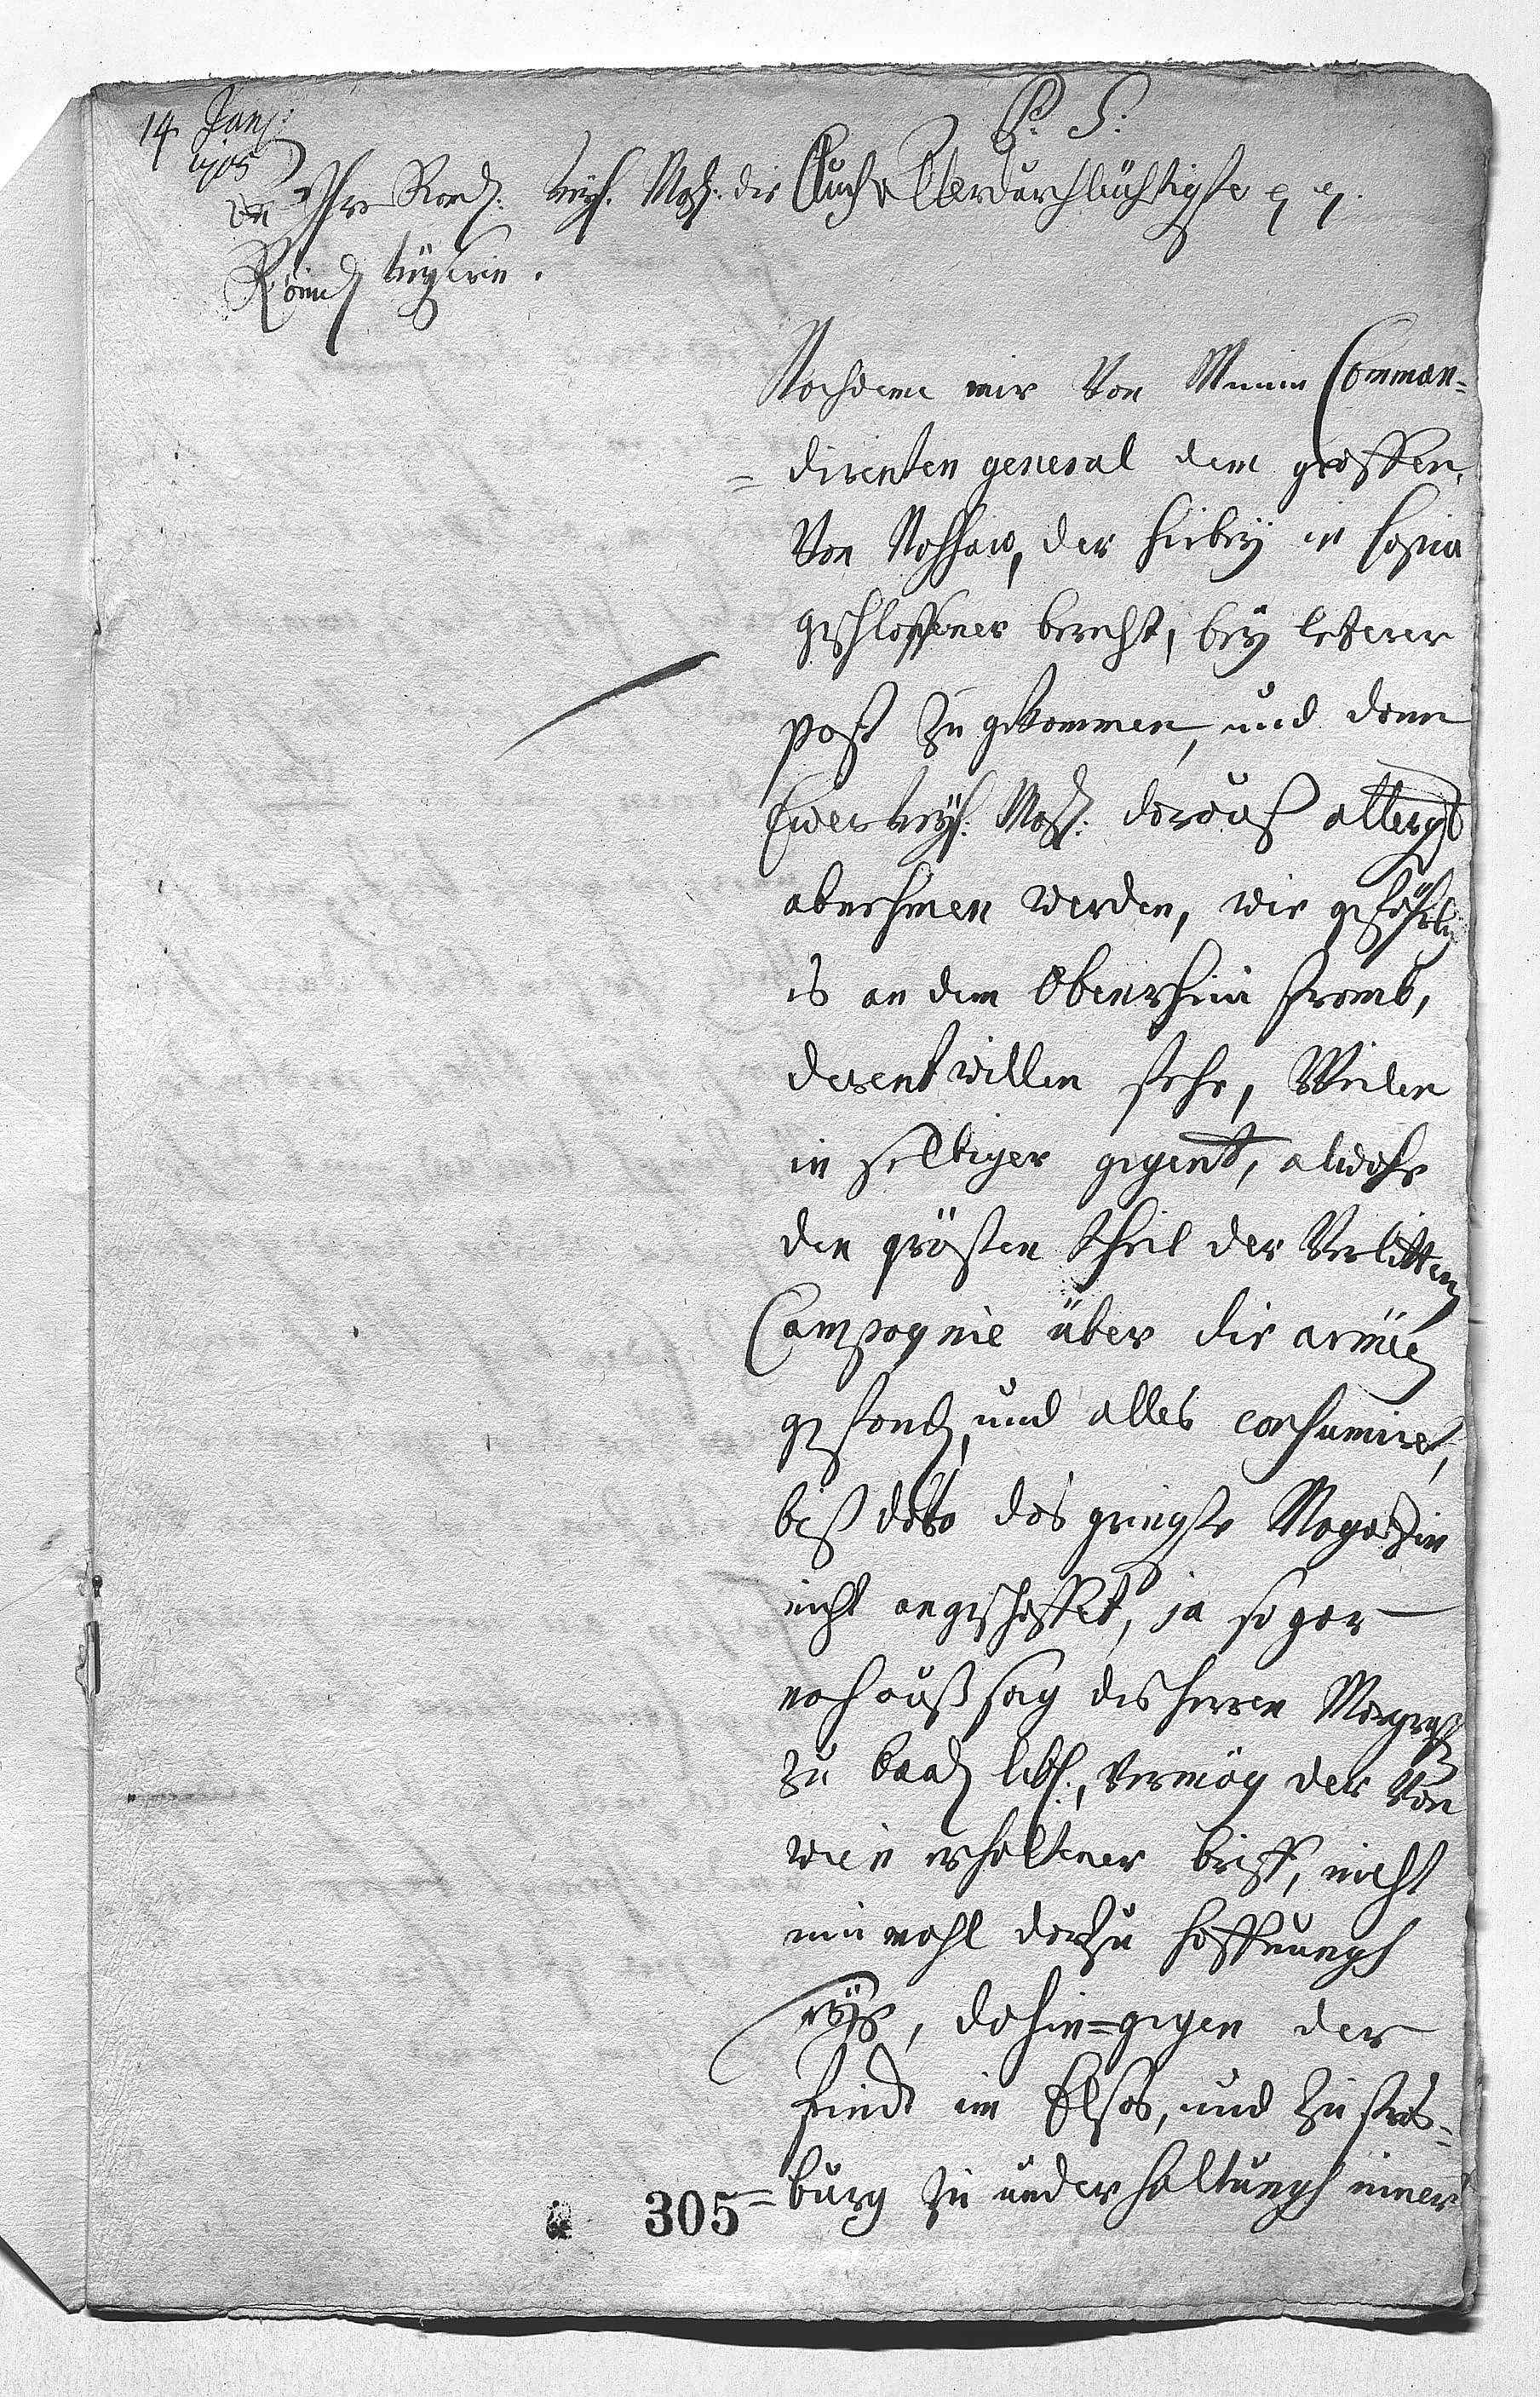 14. Janr:
1705
P. S.
An Ihro Röm: kayß. Mayt: die
Römisch kayßerin.
Auch Allerdurchleüchtigste p. p.
Nachdeme mir Von Meinem Comman=
=direnten general dem graffen
Von Nassaw, der hiebey in copia
geschlossener bericht, bey letzerer
post zu gekommen, und dann
Ewer kayß: Mayt: darauß allergdst
abnehmen werden, wie gefährlich
es an dem Oberrhein stromb,
derentwillen stehe, Weilen
in selbiger gegent, alwohe
den grösten theil der Verlittenen
Campagnie über die armée
gestanden, und alles consumiret,
biß dato das gringste Magazin
nicht angeschaffet, ja so gar
nach außsag des herren Marggraffen
zu Baaden lbd:, Vermög der Von
wien erhaltener brieff, nicht
einmahl darzu hoffnungh
seye, dahin=gegen der
feindt im Elsas, und zu stras=
=burg zu underhaltungh einer
305